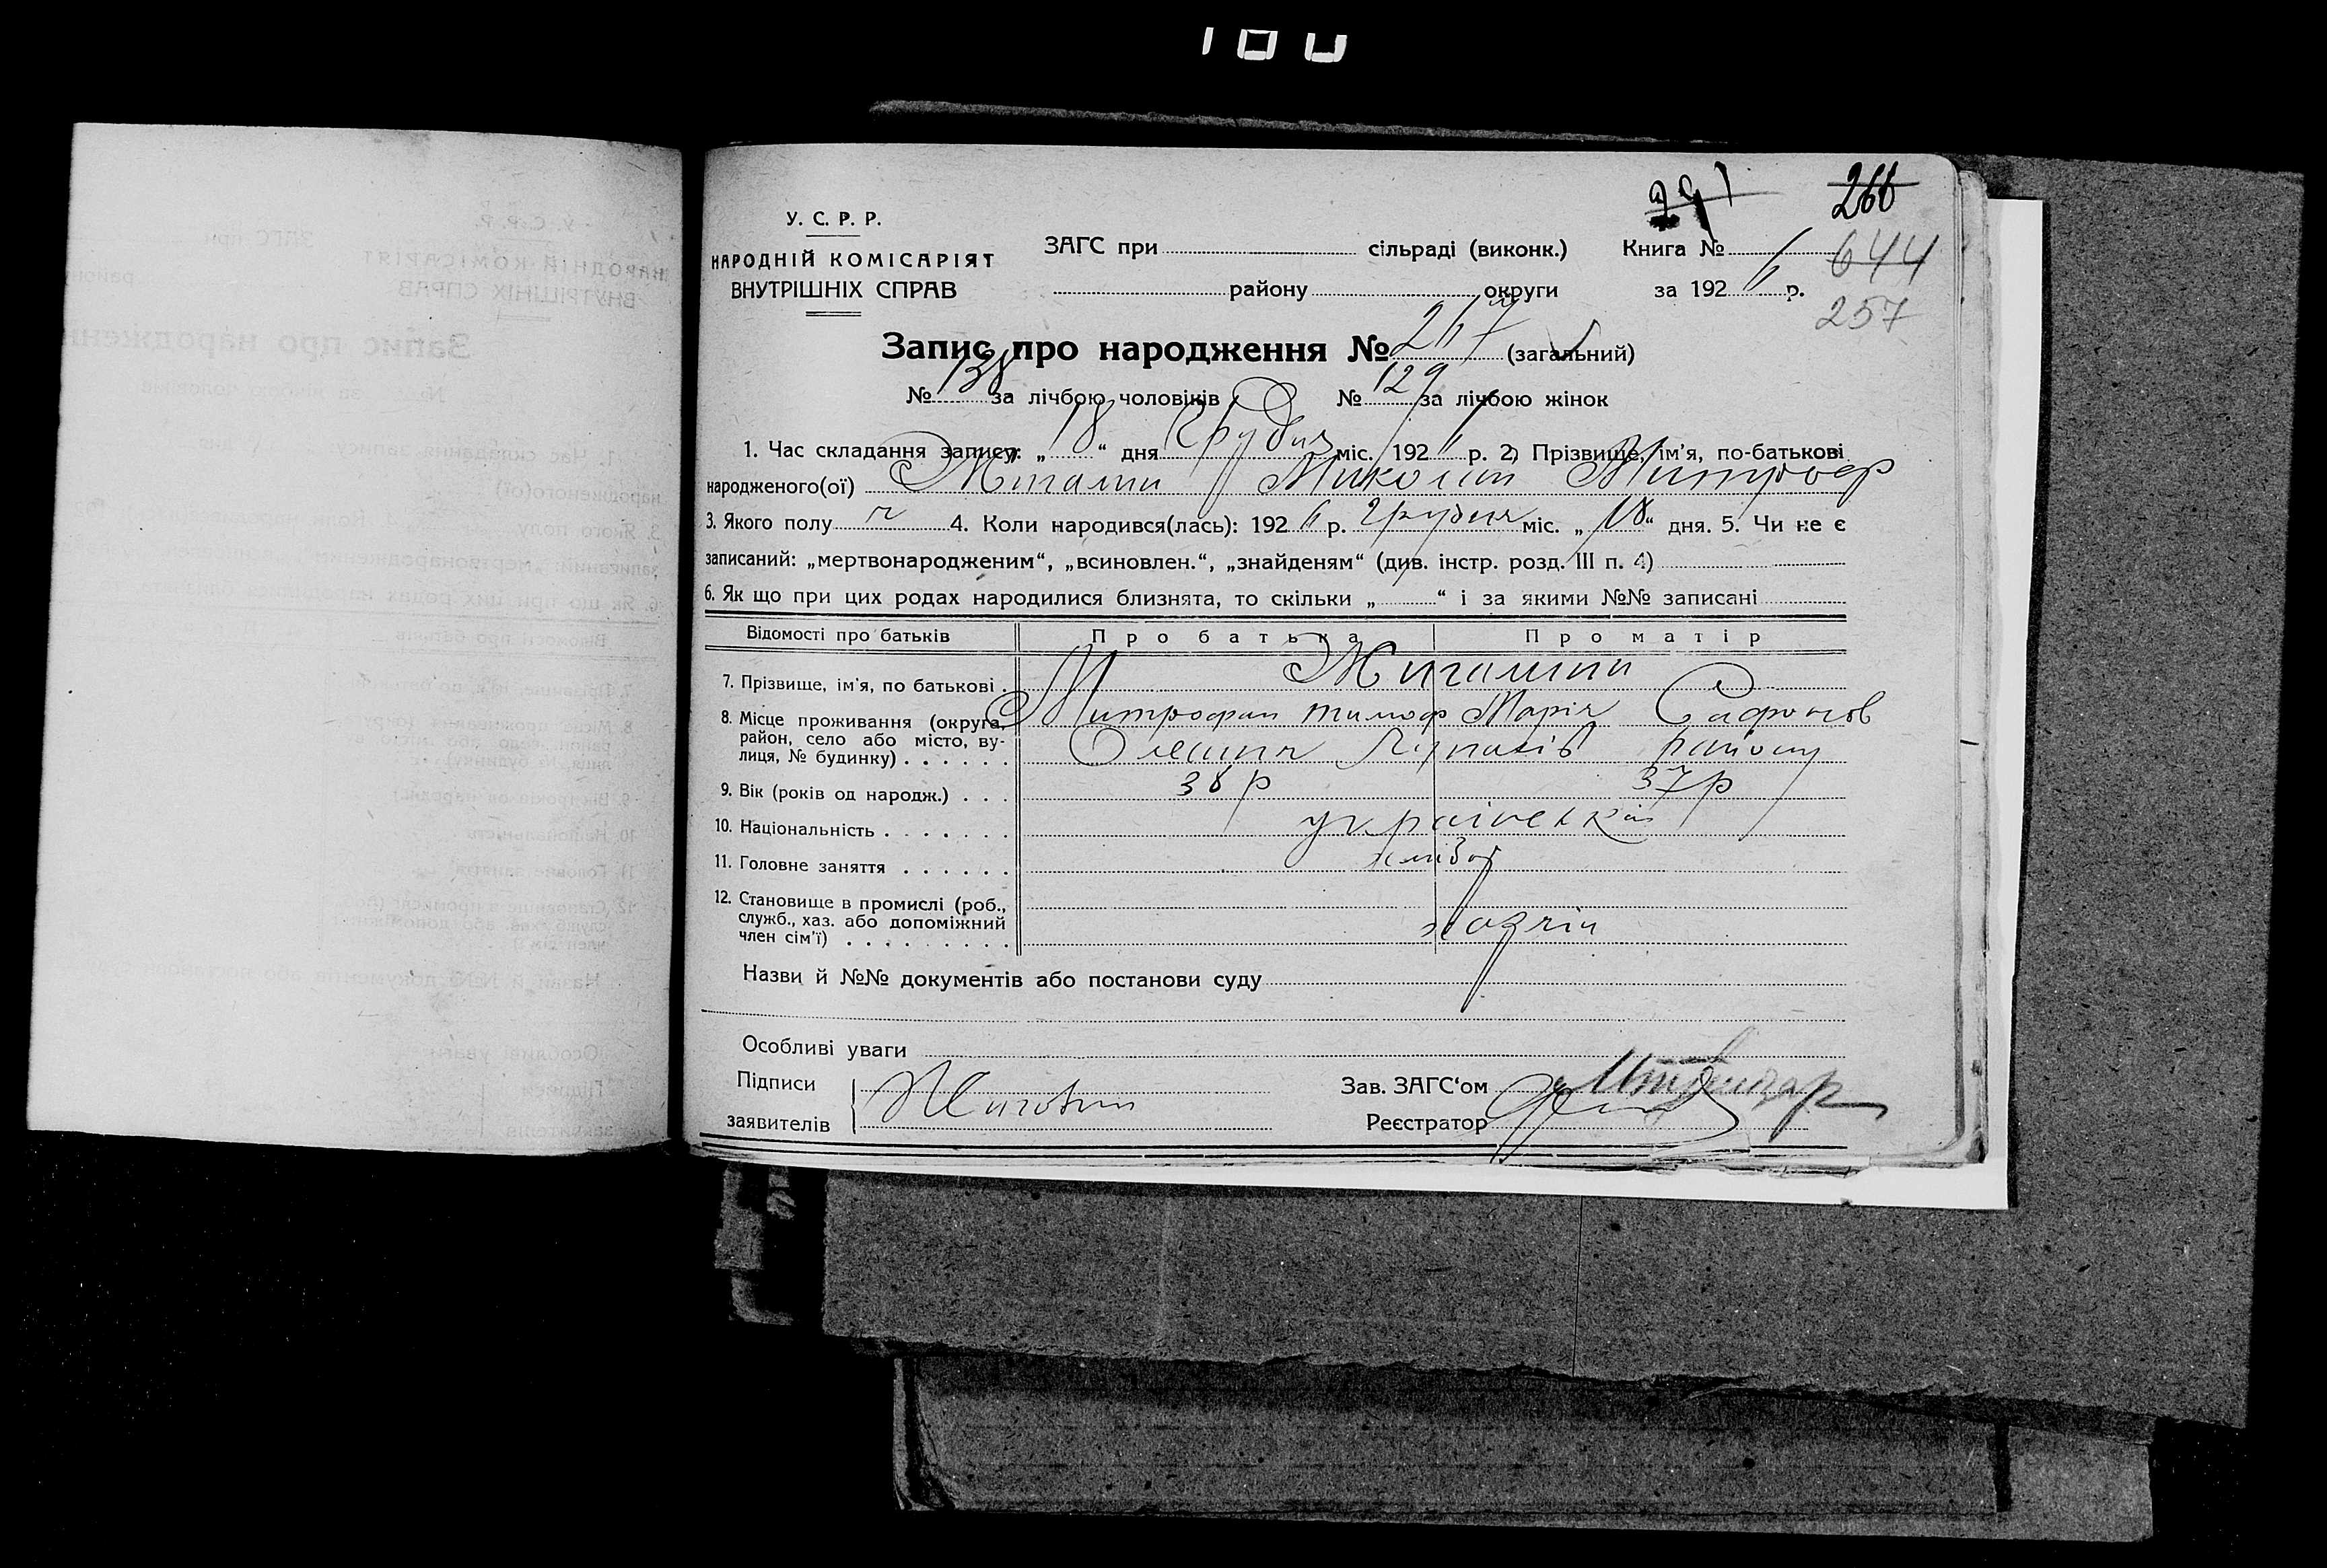 180
291
266
У. С. Р. Р.
НАРОДНІЙ КОМІСАРІЯТ
ВНУТРІШНІХ СПРАВ
ЗАГС при сільраді (виконк.)
району округи
Книга №
за 1926 р.
644
257
Запис про народження № 267 (загальний)
№ 138 за лічбою чоловіків № 129 за лічбою жінок
1. Час складання запису: „18“ дня Грудня міс. 1926 р. 2) Прізвище, ім’я, по-батькові
народженого(ої) Микола Митроф
3. Якого полу ч 4. Коли народився(лась): 1926 р. Грудня міс. „18“ дня. 5. Чи не є
записаний: „мертвонародженим“, „всиновлен.“, „знайденям“ (див. інстр. розд. III п. 4)
6. Як що при цих родах народилися близнята, то скільки „ “ і за якими №№ записані
Відомості про батьків Про батька Про матір
7. Прізвище, ім’я, по батькові
Митрофан Тимоф Марія Сафонов
8. Місце проживання (округа, район, село або місто, вулиця, № будинку) району
9. Вік (років од народж.) 38 р 37 р
10. Національність українська
11. Головне заняття хлібор
12. Становище в промислі (роб., служб., хаз. або допоміжний член сім’ї) хазяїн
Назви й №№ документів або постанови суду
Особливі уваги
Підписи
заявителів
Зав. ЗАГС‘ом
Реєстратор